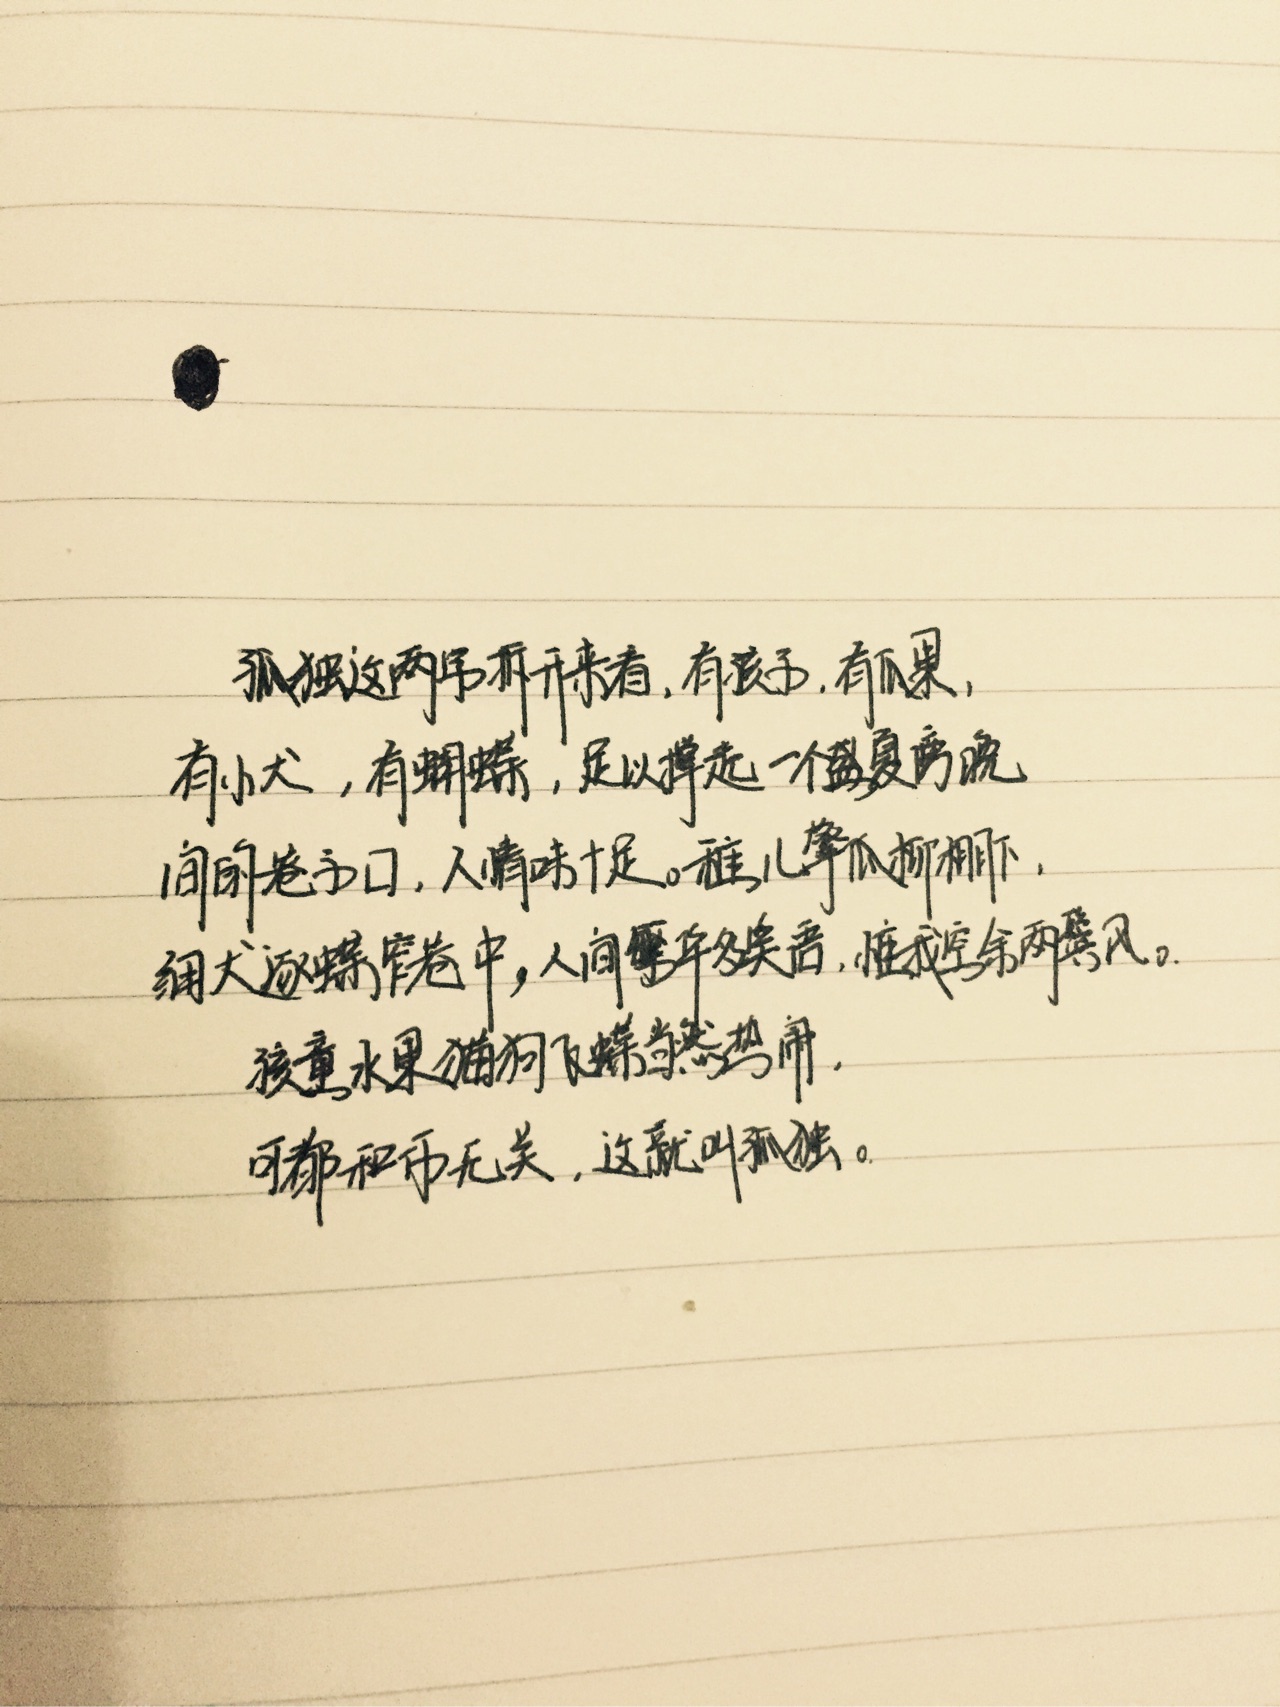 孤独这两字拆开来看,有孩子,有瓜果,
有小犬,有蝴蝶,足以撑起一个盛夏傍晚
间的巷子口,人情味十足。稚儿擎瓜柳棚下,
细犬逐蝶窄巷中,人间繁华多笑,惟我空余两鬓风。
孩童水果猫狗飞蝶当然热闹,
可都和无关,这就叫孤独。